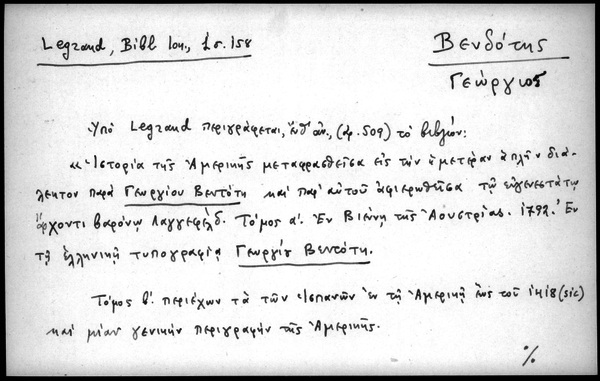 Legrand, Bibl Ion., 1 σ. 158
Βενδότης
Γεώργιος
Ὑπὸ Legrand περιγράφεται, ἔνθ' ἀν., (ἀρ. 509) τὸ βιβλίον:
«Ἱστορία τῆς Ἀμερικῆς μεταφρασθεῖσα εἰς τὴν ἡμετέραν ἁπλῆν διά-
λεκτον παρὰ Γεωργίου Βεντότη καὶ παρ' αὐτοῦ ἀφιερωθεῖσα τῷ εὐγενεστάτῳ
ἄρχοντι βαρόνῳ Λαγγεφέλδ. Τόμος α'. Ἐν Βιέννῃ τῆς Ἀουστρίας. 1792. Ἐν
τῇ ἑλληνικῇ τυπογραφίᾳ Γεωργίου Βεντότη.
Τόμος β'. περιέχων τὰ τῶν Ἱσπανῶν ἐν τῇ Ἀμερικῇ ἕως τοῦ 1418 (sic)
καὶ μίαν γενικὴν περιγραφὴν τῆς Ἀμερικῆς.
%